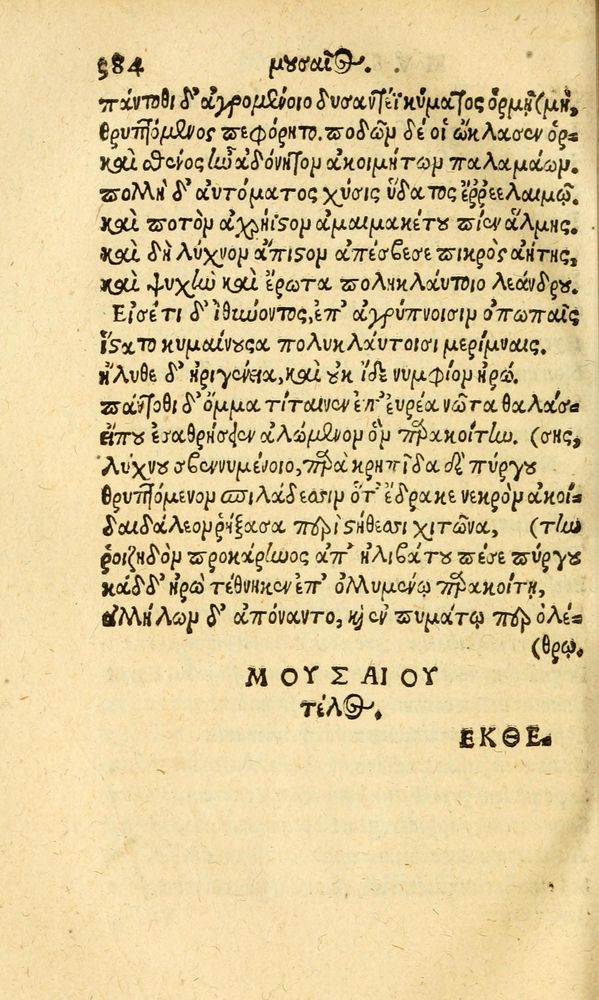 584 μουσαῖος.
πάντοθι δ' ἀγρομένοιο δυσαντέϊ κύματος ὁρμῇ (μὴ,
θρυπτόμενος πεφόρητο. ποδῶν δέ οἱ ὤκλασεν ὁρ-
καὶ σθένος ἦν ἀδόνητον ἀκοιμήτων παλαμάων.
πολλὴ δ' αὐτόματος χύσις ὕδατος ἔῤῥεε λαιμῷ.
καὶ ποτὸν ἀχρήϊστον ἀμαιμακέτου πίεν ἅλμης.
καὶ δὴ λύχνον ἄπιστον ἀπέσβεσε πικρὸς ἀήτης,
καὶ ψυχὴν καὶ ἔρωτα πολυκλαύτοιο λεάνδρου.
Εἰσέτι δ' ἰθύοντος, ἐπ' ἀγρύπνοισιν ὀπωπαῖς
ἵστατο κυμαίνουσα πολυκλαύτοισι μερίμναις.
ἤλυθε δ' ἠριγένεια, καὶ οὐκ ἴδε νυμφίον ἡρώ.
πάντοθι δ' ὄμμα τίταινεν ἐπ' εὐρέα νῶτα θαλάσ-
εἴπου ἐσαθρήσειεν ἀλώμενον ὃν παρακοίτην. (σης,
λύχνου σβεννυμένοιο, παρὰ κρηπῖδα δὲ πύργου
θρυπτόμενον σπιλάδεσσιν ὅτ' ἔδρακε νεκρὸν ἀκοί-
δαιδάλεον ῥήξασα περὶ στήθεσσι χιτῶνα, (την
ῥοιζηδὸν προκάρηνος ἀπ' ἠλιβάτου πέσε πύργου
κάδδ' ἡρὼ τέθνηκεν ἐπ' ὀλλυμένῳ παρακοίτῃ,
ἀλλήλων δ' ἀπόναντο, καὶ ἐν πυμάτῳ περ ὀλέ-
(θρῳ.
ΜΟΥΣΑΙΟΥ
τέλος.
ΕΚΘΕ-